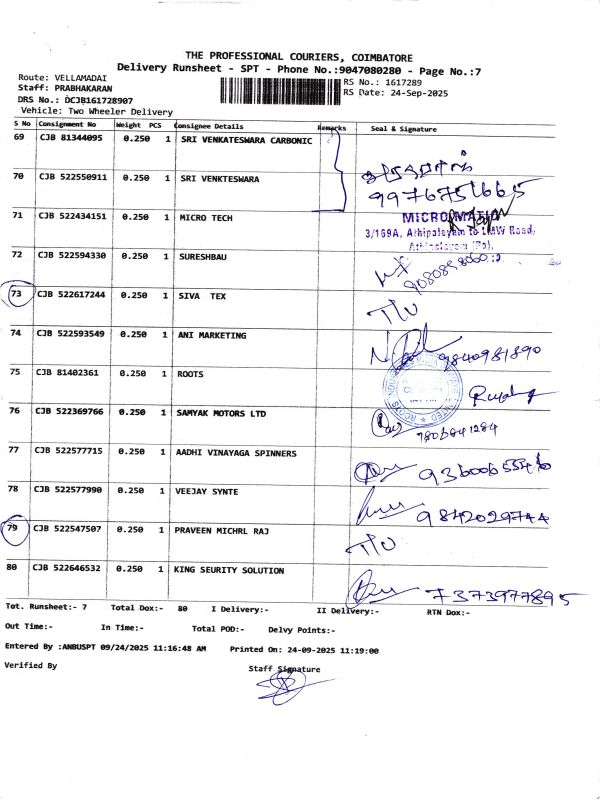 THE PROFESSIONAL COURIERS, COIMBATORE
Delivery Runsheet - SPT - Phone No.:9047080280 - Page No.:7
Route: VELLAMADAI
RS No.: 1617289
Staff: PRABHAKARAN
RS Date: 24-Sep-2025
DRS No.: DCJB161728907
Vehicle: Two Wheeler Delivery
S No Consignment No Weight PCS Consignee Details Remarks Seal & Signature
69 CJB 81344095 0.250 1 SRI VENKATESWARA CARBONIC
70 CJB 522550911 0.250 1 SRI VENKTESWARA 9976751665
71 CJB 522434151 0.250 1 MICRO TECH
MICROMATIC
3/169A, Athipalayam to LMW Road,
Athipalayam (Po),
72 CJB 522594330 0.250 1 SURESHBAU
73 CJB 522617244 0.250 1 SIVA TEX T/U
74 CJB 522593549 0.250 1 ANI MARKETING 9840981890
75 CJB 81402361 0.250 1 ROOTS
76 CJB 522369766 0.250 1 SAMYAK MOTORS LTD 7806841284
77 CJB 522577715 0.250 1 AADHI VINAYAGA SPINNERS
78 CJB 522577990 0.250 1 VEEJAY SYNTE 9842029744
79 CJB 522547507 0.250 1 PRAVEEN MICHRL RAJ T/U
80 CJB 522646532 0.250 1 KING SEURITY SOLUTION 7373977895
Tot. Runsheet:- 7 Total Dox:- 80 I Delivery:- II Delivery:- RTN Dox:-
Out Time:- In Time:- Total POD:- Delvy Points:-
Entered By :ANBUSPT 09/24/2025 11:16:48 AM Printed On: 24-09-2025 11:19:00
Verified By Staff Signature